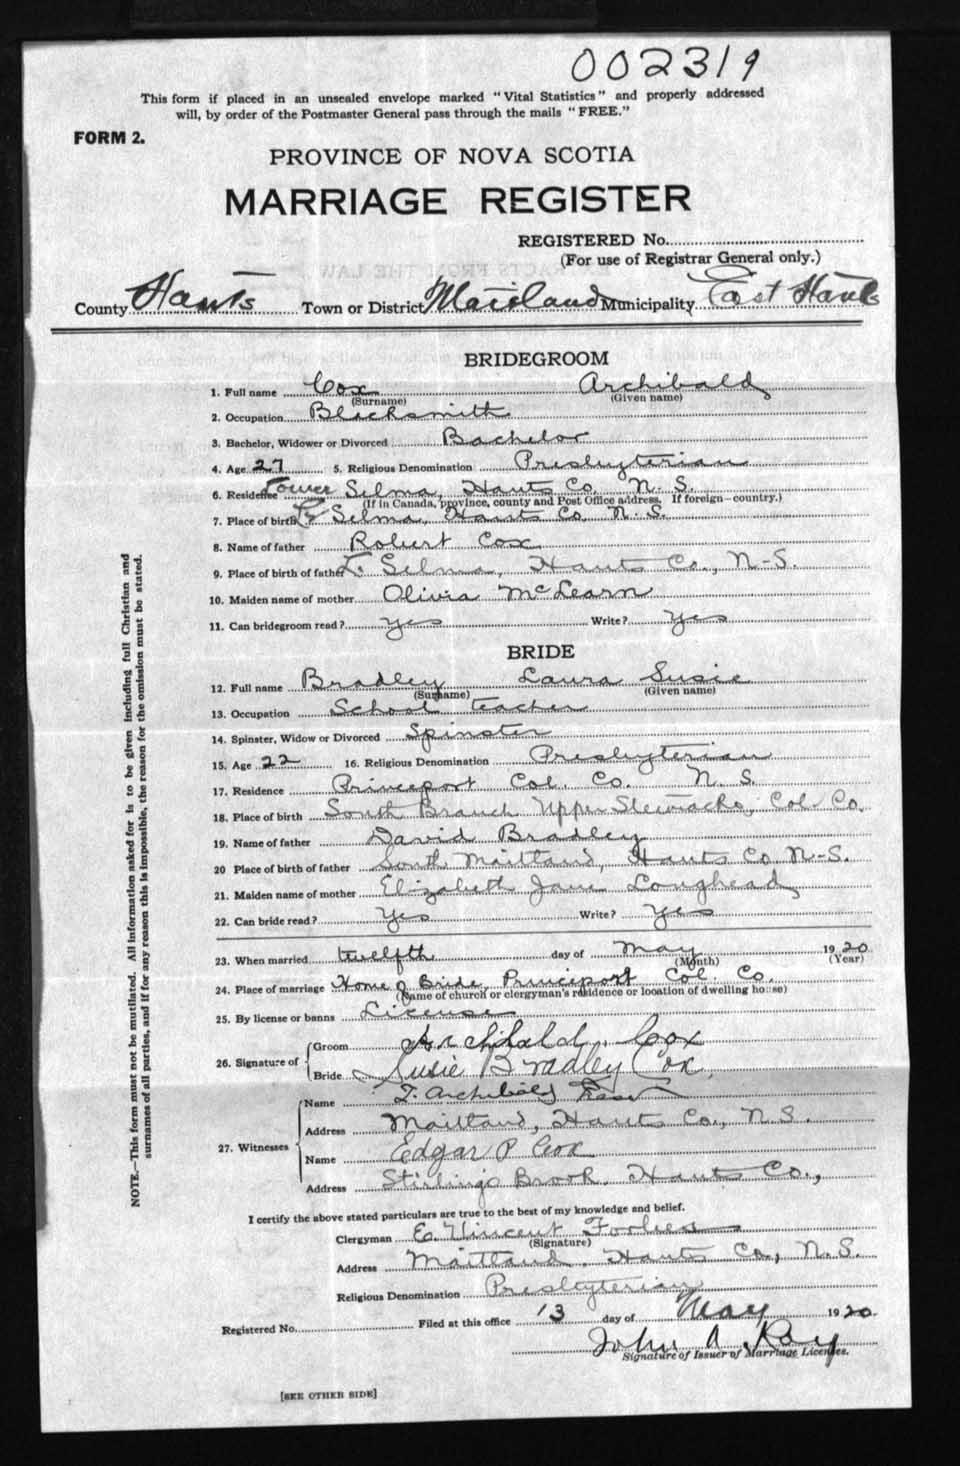 002319
This form if placed in an unsealed envelope marked "Vital Statistics" and properly addressed
will, by order of the Postmaster General pass through the mails "FREE."
FORM 2.
PROVINCE OF NOVA SCOTIA
MARRIAGE REGISTER
REGISTERED No.
(For use of Registrar General only.)
County Hants Town or District Maitland Municipality East Hants
BRIDEGROOM
1. Full name Cox Archibald
(Surname) (Given name)
2. Occupation Blacksmith
3. Bachelor, Widower or Divorced Bachelor
4. Age 27 5. Religious Denomination Presbyterian
6. Residence Lower Selma, Hants Co. N. S.
(If in Canada, province, county and Post Office address. If foreign—country.)
7. Place of birth Lr Selma, Hants Co. N. S.
8. Name of father Robert Cox
9. Place of birth of father Lr Selma, Hants Co., N-S.
10. Maiden name of mother Olivia McLearn
11. Can bridegroom read? yes Write? yes
BRIDE
12. Full name Bradley Laura Susie
(Surname) (Given name)
13. Occupation School teacher
14. Spinster, Widow or Divorced Spinster
15. Age 22 16. Religious Denomination Presbyterian
17. Residence Princeport Col. Co. N. S.
18. Place of birth South Branch Upper Stewiacke, Col. Co.
19. Name of father David Bradley
20 Place of birth of father South Maitland, Hants Co N-S.
21. Maiden name of mother Elizabeth Jane Loughead
22. Can bride read? yes Write? yes
23. When married twelfth day of May 1920
(Month) (Year)
24. Place of marriage Home of Bride, Princeport Col. Co.
(Name of church or clergyman's residence or location of dwelling house)
25. By license or banns License
26. Signature of Groom Archibald Cox
Bride Susie Bradley Cox
27. Witnesses Name T. Archibald
Address Maitland, Hants Co., N.S.
Name Edgar P Cox
Address Stirling's Brook, Hants Co.,
I certify the above stated particulars are true to the best of my knowledge and belief.
Clergyman E. Vincent Forbes
(Signature)
Address Maitland, Hants Co., N.S.
Religious Denomination Presbyterian
Registered No. Filed at this office 13 day of May 1920
John A. Roy
Signature of Issuer of Marriage Licenses.
[SEE OTHER SIDE]
NOTE.—This form must not be mutilated. All information asked for is to be given including full Christian and
surnames of all parties, and if for any reason this is impossible, the reason for the omission must be stated.